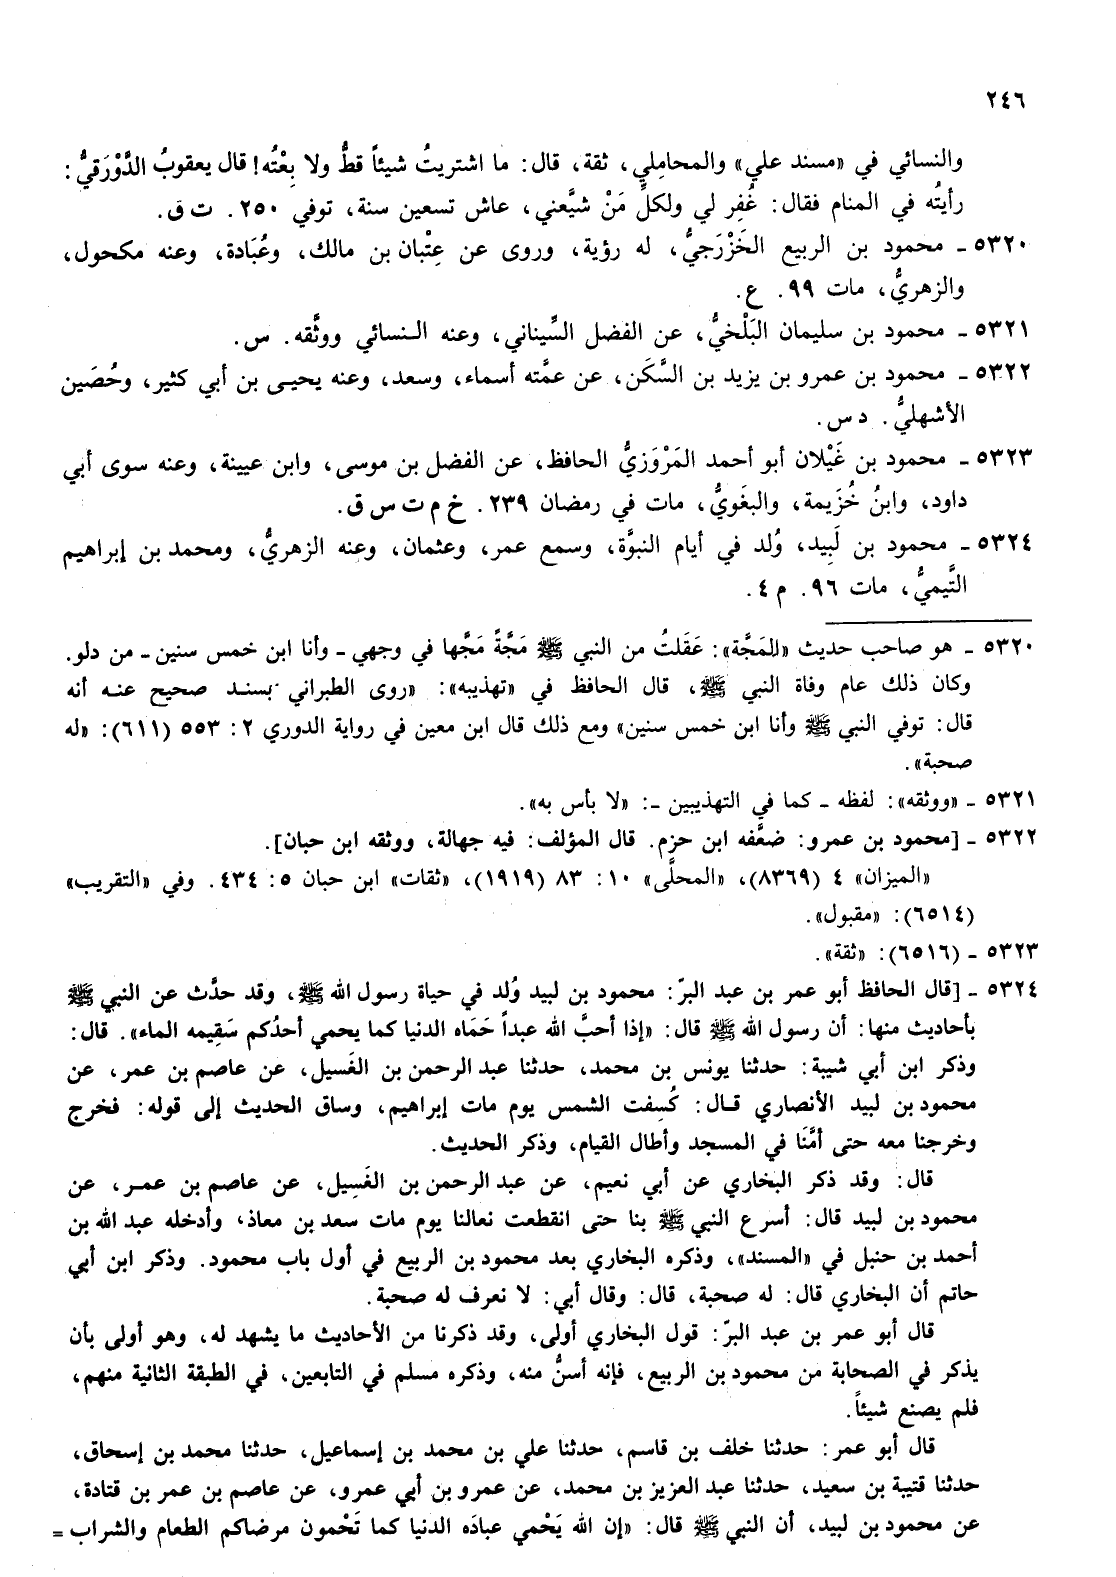 ٢٤٦
والنسائي في «مسند علي» والمحاملي، ثقة، قال: ما اشتريتُ شيئاً قطُّ ولا بِعْتُه! قال يعقوبُ الدَّوْرَقيُّ:
رأيتُه في المنام فقال: غُفِر لي ولكلِّ مَنْ شيَّعني، عاش تسعين سنة، توفي ٢٥٠. ت ق.
٥٣٢٠ ـ محمود بن الربيع الخَزْرَجيُّ، له رؤية، وروى عن عِتْبان بن مالك، وعُبَادة، وعنه مكحول،
والزهريُّ، مات ٩٩. ع.
٥٣٢١ ـ محمود بن سليمان البَلْخيُّ، عن الفضل السِّيناني، وعنه النسائي ووثَّقه. س.
٥٣٢٢ ـ محمود بن عمرو بن يزيد بن السَّكَن، عن عمَّته أسماء، وسعد، وعنه يحيى بن أبي كثير، وحُصَين
الأشهليُّ. د س.
٥٣٢٣ ـ محمود بن غَيْلان أبو أحمد المَرْوَزيُّ الحافظ، عن الفضل بن موسى، وابن عيينة، وعنه سوى أبي
داود، وابنُ خُزَيمة، والبغَويُّ، مات في رمضان ٢٣٩. خ م ت س ق.
٥٣٢٤ ـ محمود بن لَبِيد، وُلد في أيام النبوَّة، وسمع عمر، وعثمان، وعنه الزهريُّ، ومحمد بن إبراهيم
التَّيميُّ، مات ٩٦. م ٤.
٥٣٢٠ ـ هو صاحب حديث «المَجَّة»: عَقَلتُ من النبي ﷺ مَجَّةً مَجَّها في وجهي ـ وأنا ابن خمس سنين ـ من دلو.
وكان ذلك عام وفاة النبي ﷺ، قال الحافظ في «تهذيبه»: «روى الطبراني بسند صحيح عنه أنه
قال: توفي النبي ﷺ وأنا ابن خمس سنين» ومع ذلك قال ابن معين في رواية الدوري ٢: ٥٥٣ (٦١١): «له
صحبة».
٥٣٢١ ـ «ووثقه»: لفظه ـ كما في التهذيبين ـ: «لا بأس به».
٥٣٢٢ ـ [محمود بن عمرو: ضعَّفه ابن حزم. قال المؤلف: فيه جهالة، ووثقه ابن حبان].
«الميزان» ٤ (٨٣٦٩)، «المحلَّى» ١٠: ٨٣ (١٩١٩)، «ثقات» ابن حبان ٥: ٤٣٤. وفي «التقريب»
(٦٥١٤): «مقبول».
٥٣٢٣ ـ (٦٥١٦): «ثقة».
٥٣٢٤ ـ [قال الحافظ أبو عمر بن عبد البرّ: محمود بن لبيد وُلد في حياة رسول الله ﷺ، وقد حدَّث عن النبي ﷺ
بأحاديث منها: أن رسول الله ﷺ قال: «إذا أحبَّ الله عبداً حَمَاه الدنيا كما يحمي أحدُكم سَقِيمه الماء». قال:
وذكر ابن أبي شيبة: حدثنا يونس بن محمد، حدثنا عبد الرحمن بن الغَسيل، عن عاصم بن عمر، عن
محمود بن لبيد الأنصاري قال: كُسِفت الشمس يوم مات إبراهيم، وساق الحديث إلى قوله: فخرج
وخرجنا معه حتى أمَّنَا في المسجد وأطال القيام، وذكر الحديث.
قال: وقد ذكر البخاري عن أبي نعيم، عن عبد الرحمن بن الغَسِيل، عن عاصم بن عمر، عن
محمود بن لبيد قال: أسرع النبي ﷺ بنا حتى انقطعت نعالنا يوم مات سعد بن معاذ، وأدخله عبد الله بن
أحمد بن حنبل في «المسند»، وذكره البخاري بعد محمود بن الربيع في أول باب محمود. وذكر ابن أبي
حاتم أن البخاري قال: له صحبة، قال: وقال أبي: لا نعرف له صحبة.
قال أبو عمر بن عبد البرّ: قول البخاري أولى، وقد ذكرنا من الأحاديث ما يشهد له، وهو أولى بأن
يذكر في الصحابة من محمود بن الربيع، فإنه أسنُّ منه، وذكره مسلم في التابعين، في الطبقة الثانية منهم،
فلم يصنع شيئاً.
قال أبو عمر: حدثنا خلف بن قاسم، حدثنا علي بن محمد بن إسماعيل، حدثنا محمد بن إسحاق،
حدثنا قتيبة بن سعيد، حدثنا عبد العزيز بن محمد، عن عمرو بن أبي عمرو، عن عاصم بن عمر بن قتادة،
عن محمود بن لبيد، أن النبي ﷺ قال: «إن الله يَحْمي عبادَه الدنيا كما تَحْمون مرضاكم الطعام والشراب =